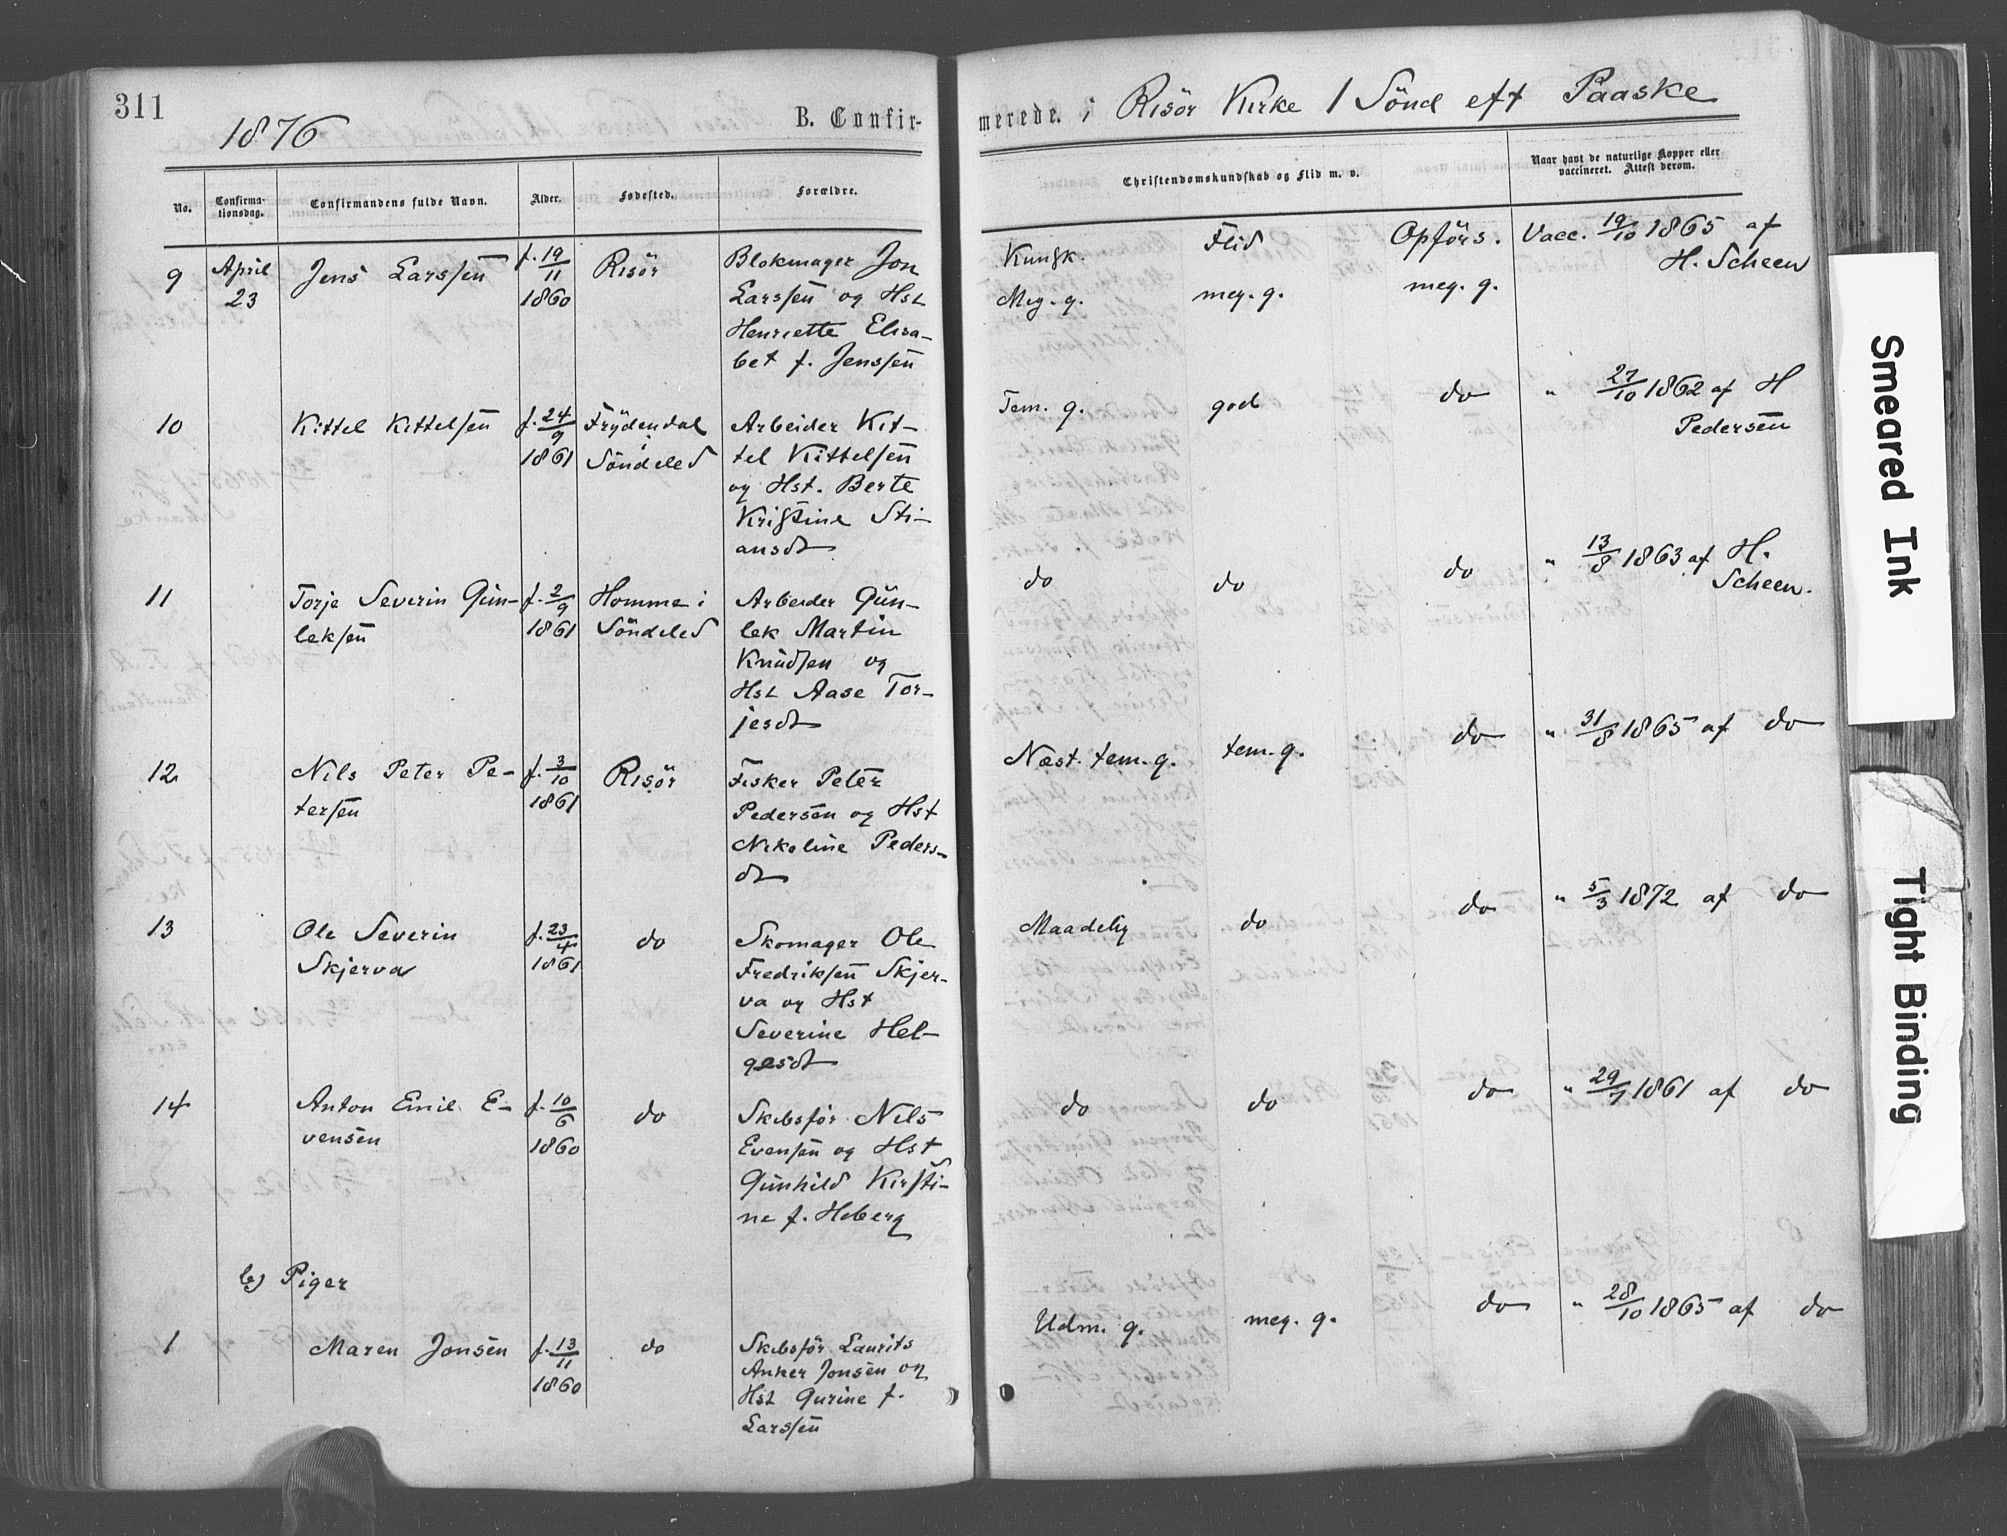 311
1876
B. Confir-
merede. i Risör Kirke 1 Sönd eft Paaske
No.
Confirma-
tionsdag.
Confirmandens fulde Navn.
Alder.
Fødested.
Forældre.
Christendomskundskab og Flid m. v.
Naar havt de naturlige Kopper eller
vaccineret. Attest derom.
9
April
23
Jens Larssen
f. 19/11
1860
Risör
Blokmager Jon
Larssen og Hst
Henriette Elisa-
bet f. Jenssen
Kunsk.
Meg. g.
Flid
meg. g.
Opförs.
meg. g.
Vacc. 19/10 1865 af
H. Scheen
10
Kittel Kittelsen
f. 24/9
1861
Frydendal
i
Söndeled
Arbeider Kit-
tel Kittelsen
og Hst. Berte
Kristine Sti-
ansdt
Tem. g.
god
do
" 27/10 1862 af H
Pedersen
11
Torje Severin Gun-
leksen
f. 2/9
1861
Homme i
Söndeled
Arbeider Gun-
lek Martin
Knudsen og
Hst Aase Tor-
jesdt
do
do
do
" 13/8 1863 af H.
Scheen.
12
Nils Peter Pe-
tersen
f. 3/10
1861
Risör
Fisker Peter
Pedersen og Hst
Nikoline Peders-
dt
Næst. tem. g.
tem. g.
do
" 31/8 1865 af do
13
Ole Severin
Skjerva
f. 23/4
1861
do
Skomager Ole
Fredriksen Skjer-
va og Hst
Severine Hel-
gesdt
Maadelig
do
do
" 5/3 1872 af do
14
Anton Emil E-
vensen
f. 10/6
1860
do
Skibsför Nils
Evensen og Hst
Gunhild Kirsti-
ne f. Hoberg
do
do
do
" 29/7 1861 af do
b) Piger
1
Maren Jonsen
f. 13/11
1860
do
Skibsför Laurits
Anker Jonsen og
Hst Gurine f.
Larssen
Udm. g.
meg. g.
do
" 28/10 1865 af do
Smeared Ink
Tight Binding